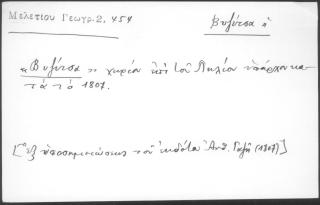 Μελετίου Γεωγρ. 2, 454
Βυζίτσα ἡ
«Βυζίτσα» χωρίον ἐπὶ τοῦ Πηλίου ὑπάρχον κα-
τὰ τὸ 1807.
[Ἐξ ὑποσημειώσεως τοῦ ἐκδότα Ἀνθ. Γαζῆ (1807)]